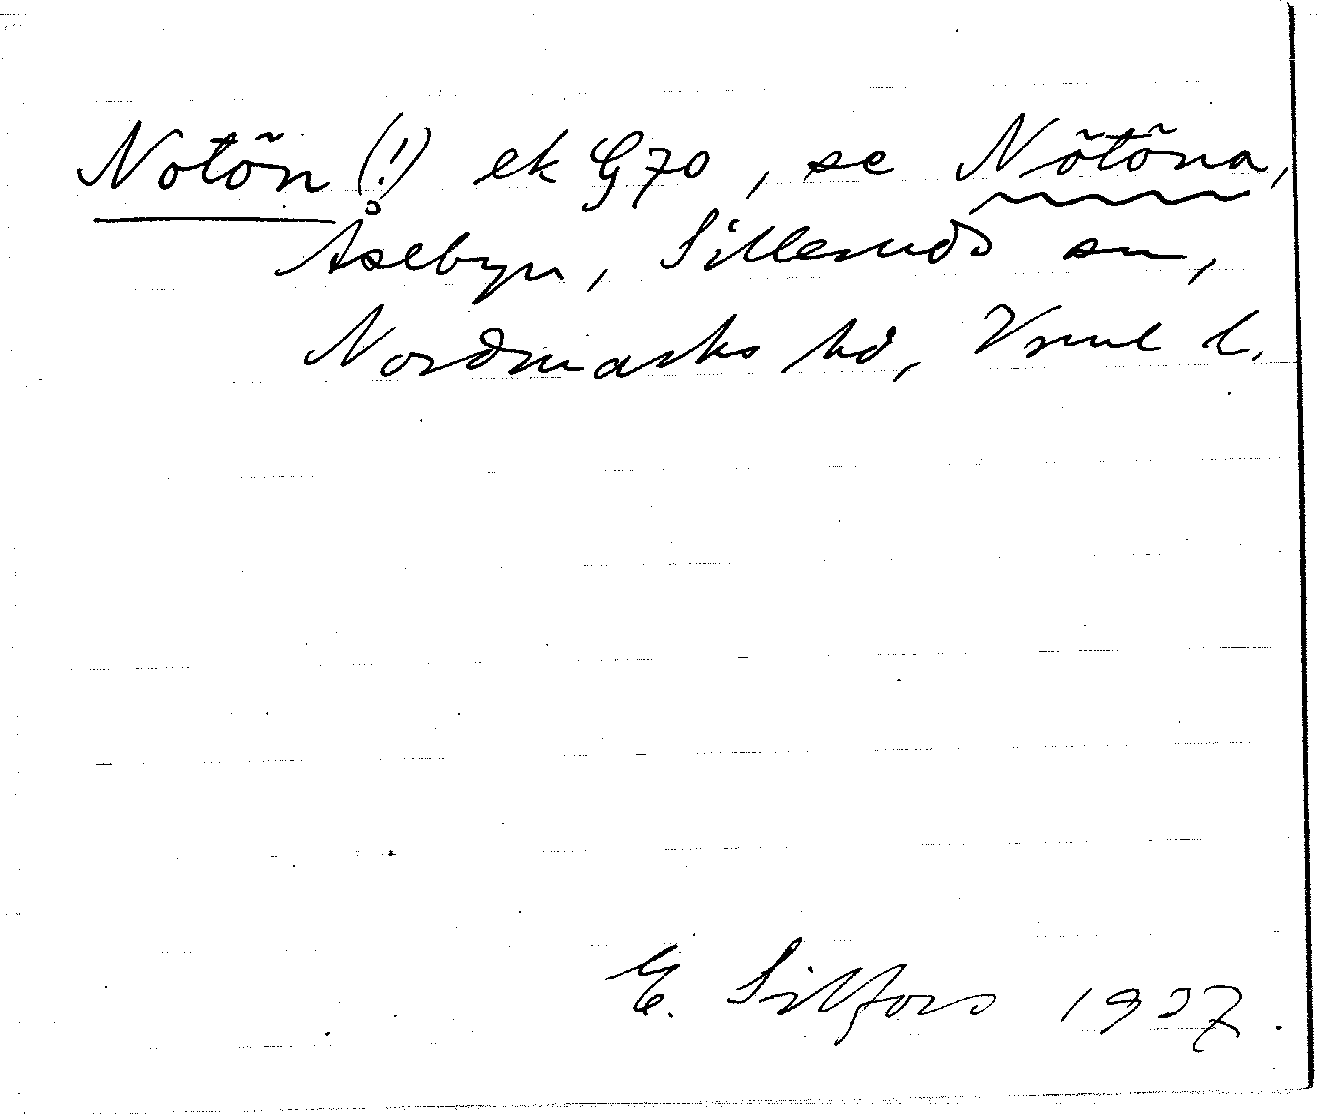 Notön (!) ek G70, se Nötöna,
Åsebyn, Silleruds sn,
Nordmarks hd, Vrml l.
E. Silfors 1937.